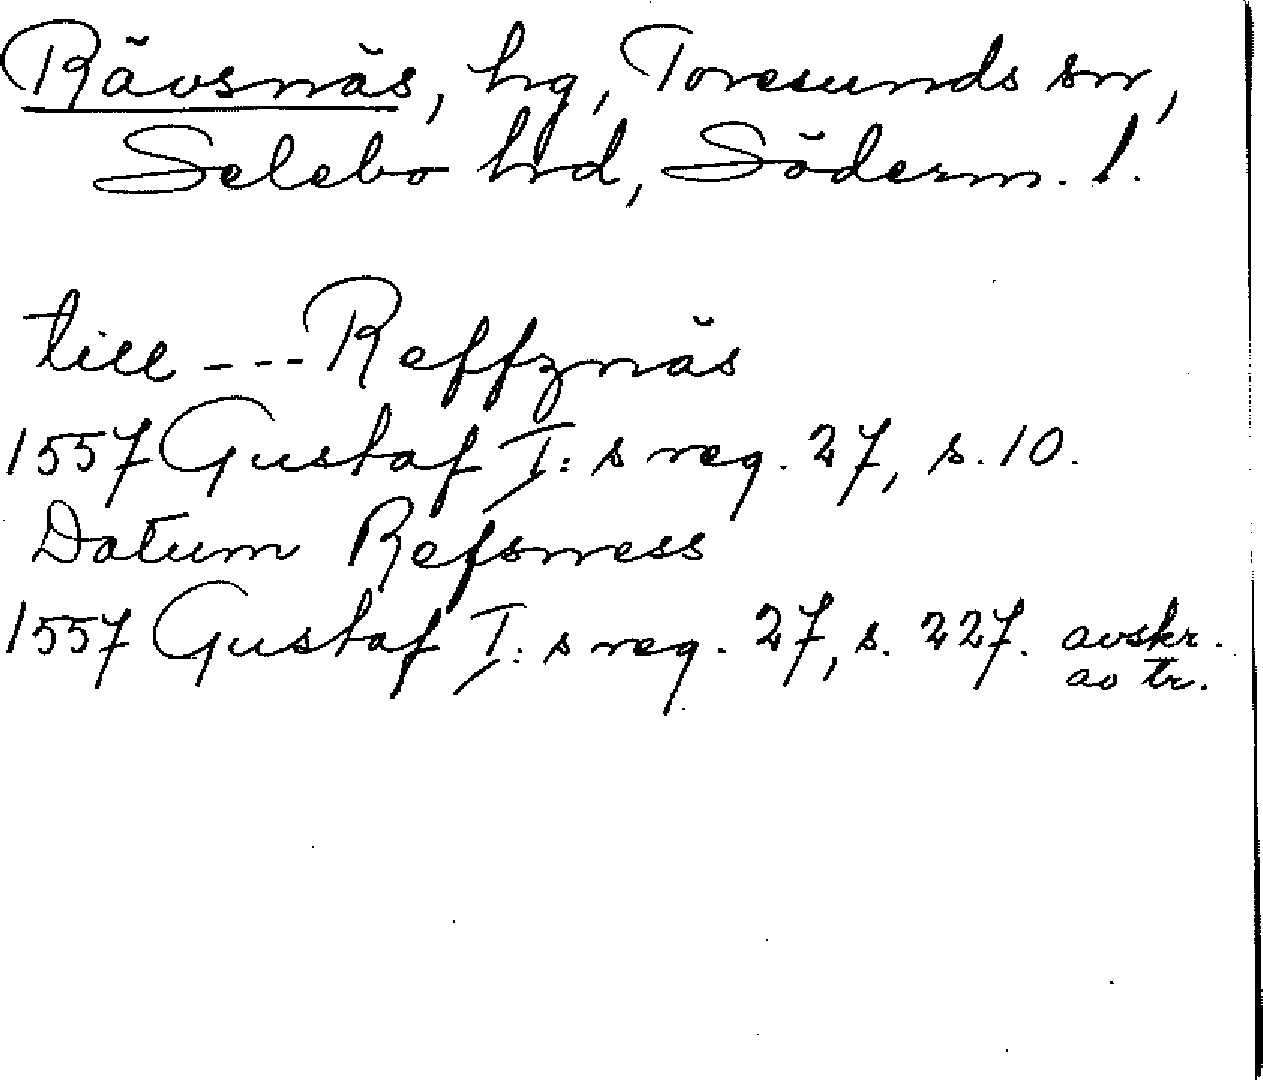 Rävsnäs, hg, Toresunds sn,
Selebo hd, Söderm. l.
till --- Reffznäs
1557 Gustaf I: s reg. 27, s. 10.
Datum Refsness
1557 Gustaf I: s reg. 27, s. 227. avskr.
av tr.